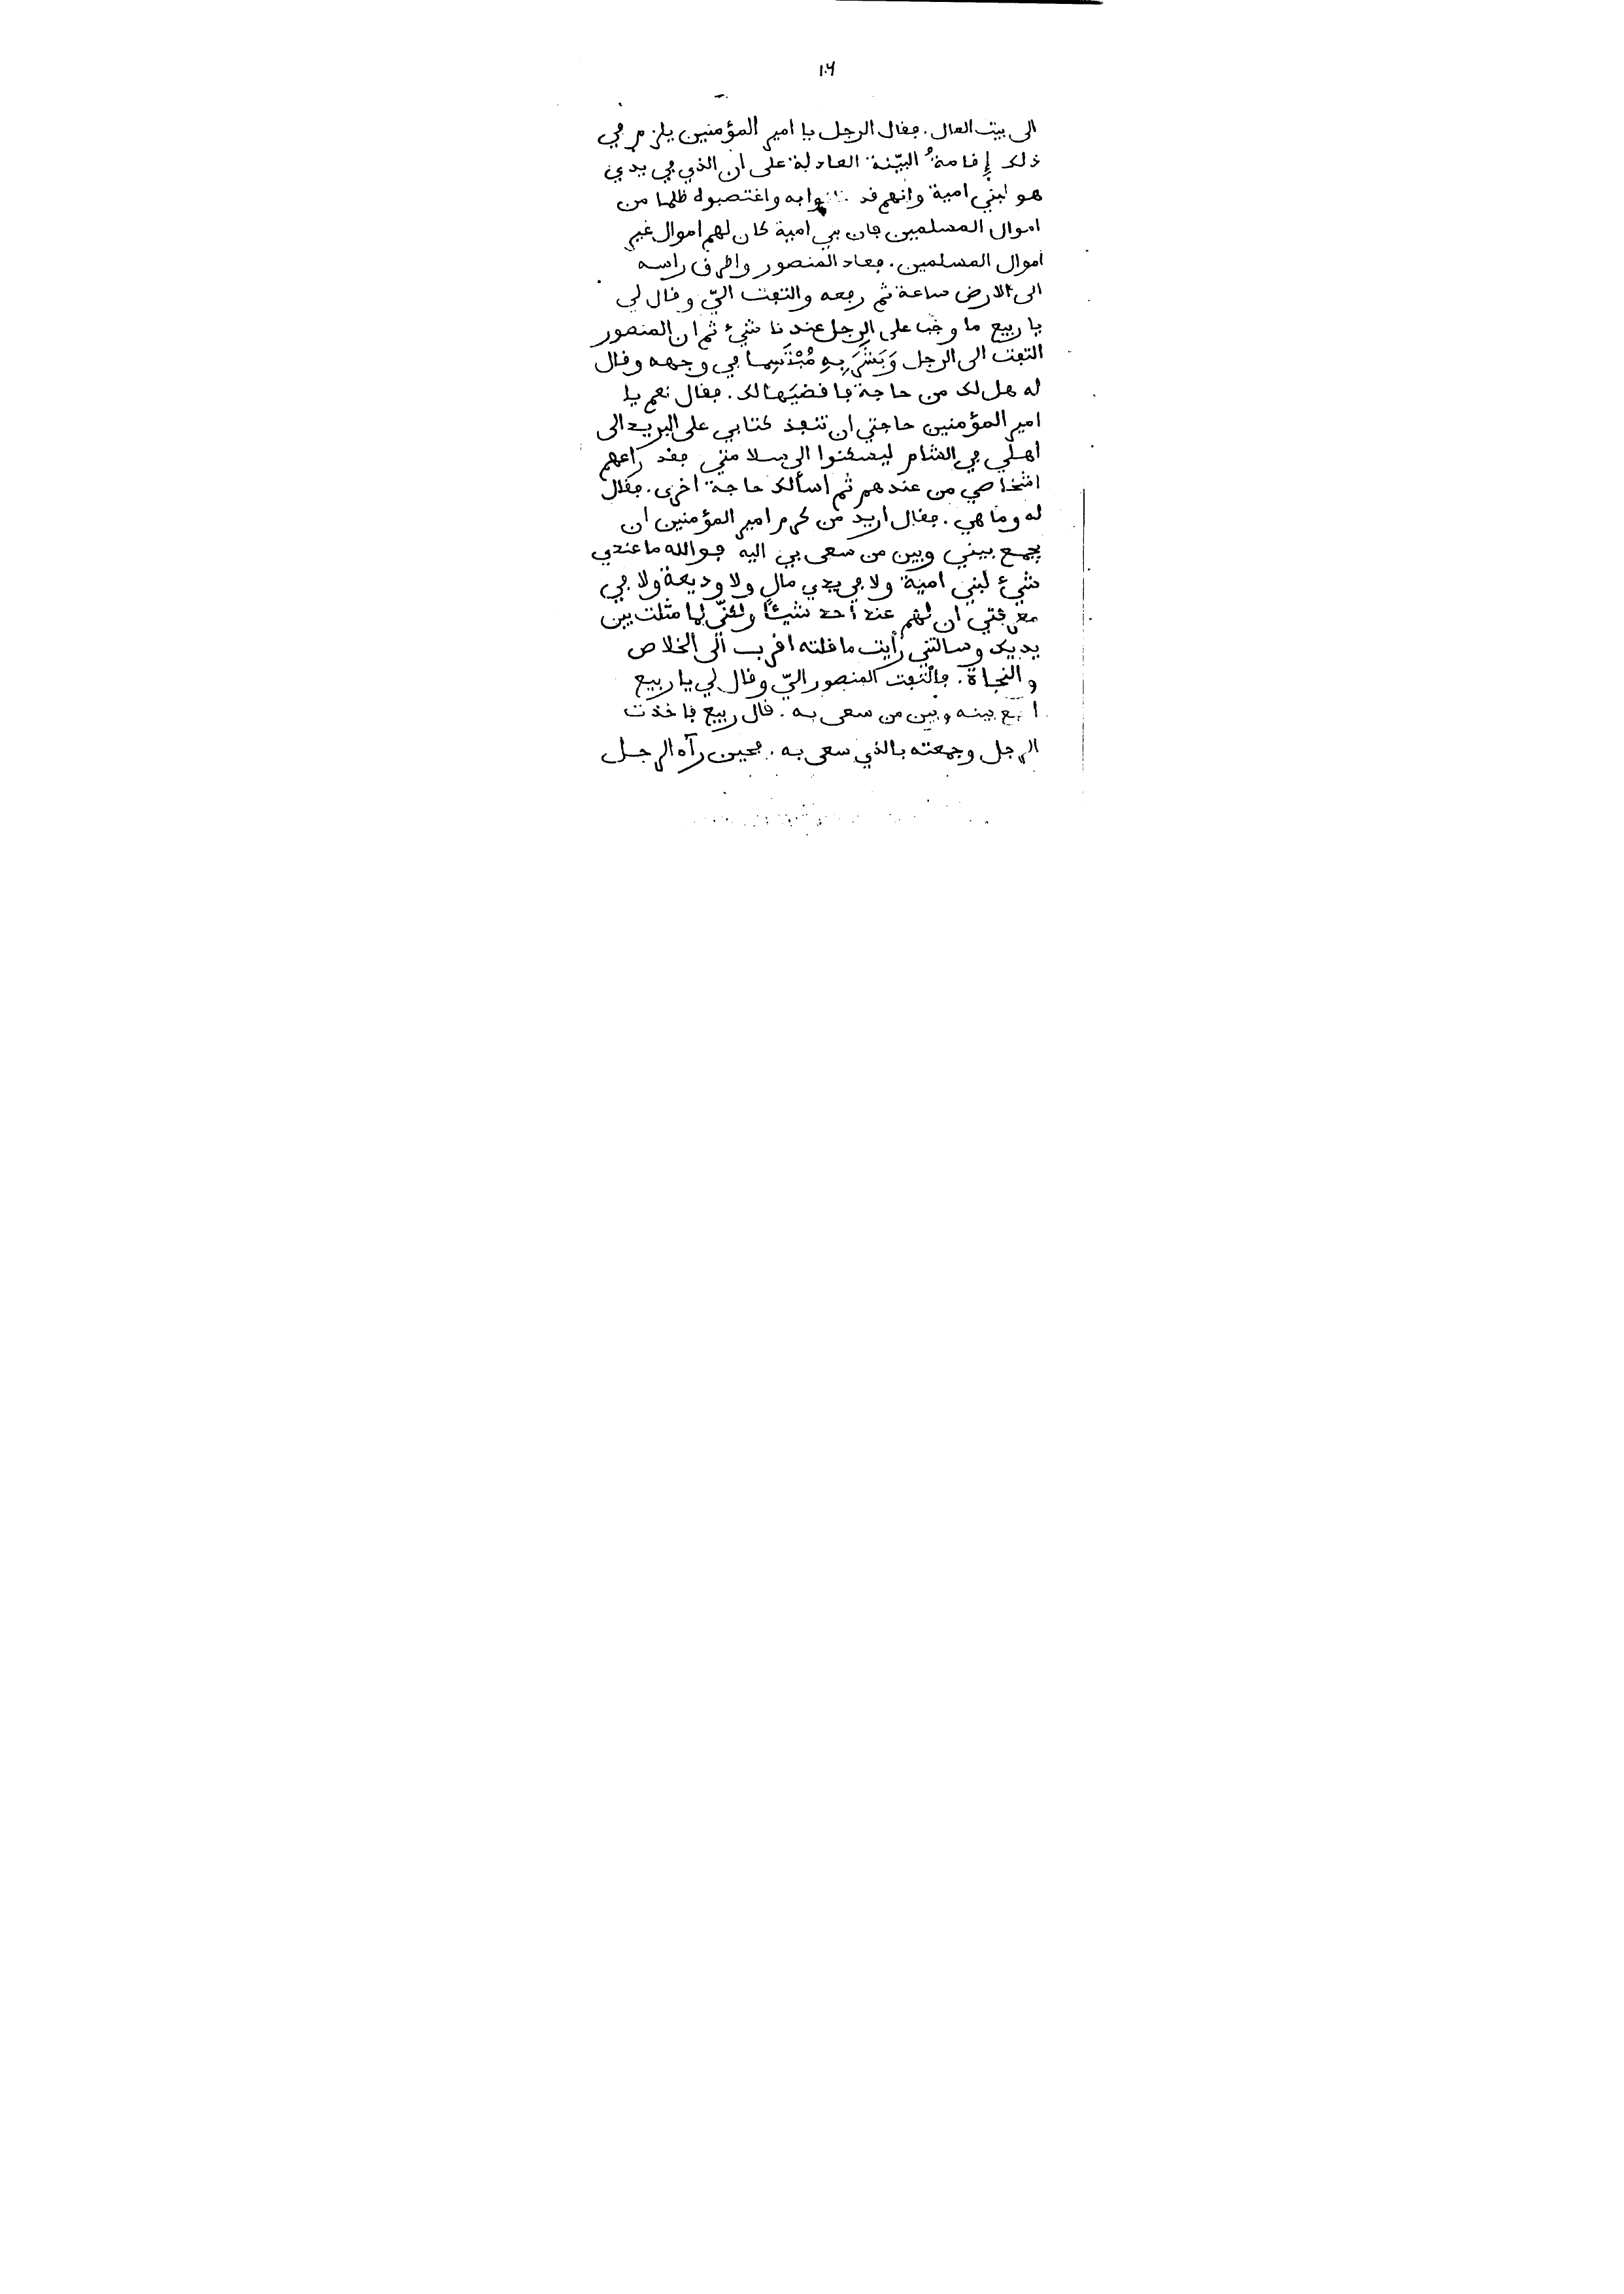 ١٠٦
الى بيت المال. فقال الرجل يا امير المؤمنين يلزم في
ذلك إقامةُ البيّنة العادلة على ان الذي في يدي
هو لبني امية وانهم قد وابه واغتصبوه ظلما من
اموال المسلمين فان بني امية كان لهم اموال غير
اموال المسلمين. فعاد المنصور واطرق راسه
الى الارض ساعة ثم رفعه والتفت اليّ وقال لي
يا ربيع ما وجب على الرجل عندنا شيء ثم ان المنصور
التفت الى الرجل وَبَشَّرَ بِهِ مُبْتَسِما في وجهه وقال
له هل لك من حاجة فاقضيَها لك. فقال نعم يا
امير المؤمنين حاجتي ان تنفذ كتابي على البريد الى
اهلي في الشام ليسكنوا الى سلامتي فقد راعهم
اشخاصي من عندهم ثم اسألك حاجة اخرى. فقال
له وما هي. فقال اريد من كرم امير المؤمنين ان
يجمع بيني وبين من سعى بي اليه فوالله ما عندي
شيء لبني امية ولا في يدي مال ولا وديعة ولا في
معرفتي ان لهم عند أحد شيئًا ولكنّي لما مثلت بين
يديك وسالتني رأيت ما قلته اقرب الى الخلاص
والنجاة. فالتفت المنصور اليّ وقال لي يا ربيع
اجمع بينه وبين من سعى به. قال ربيع فاخذت
الرجل وجمعته بالذي سعى به. فحين رآه الرجل